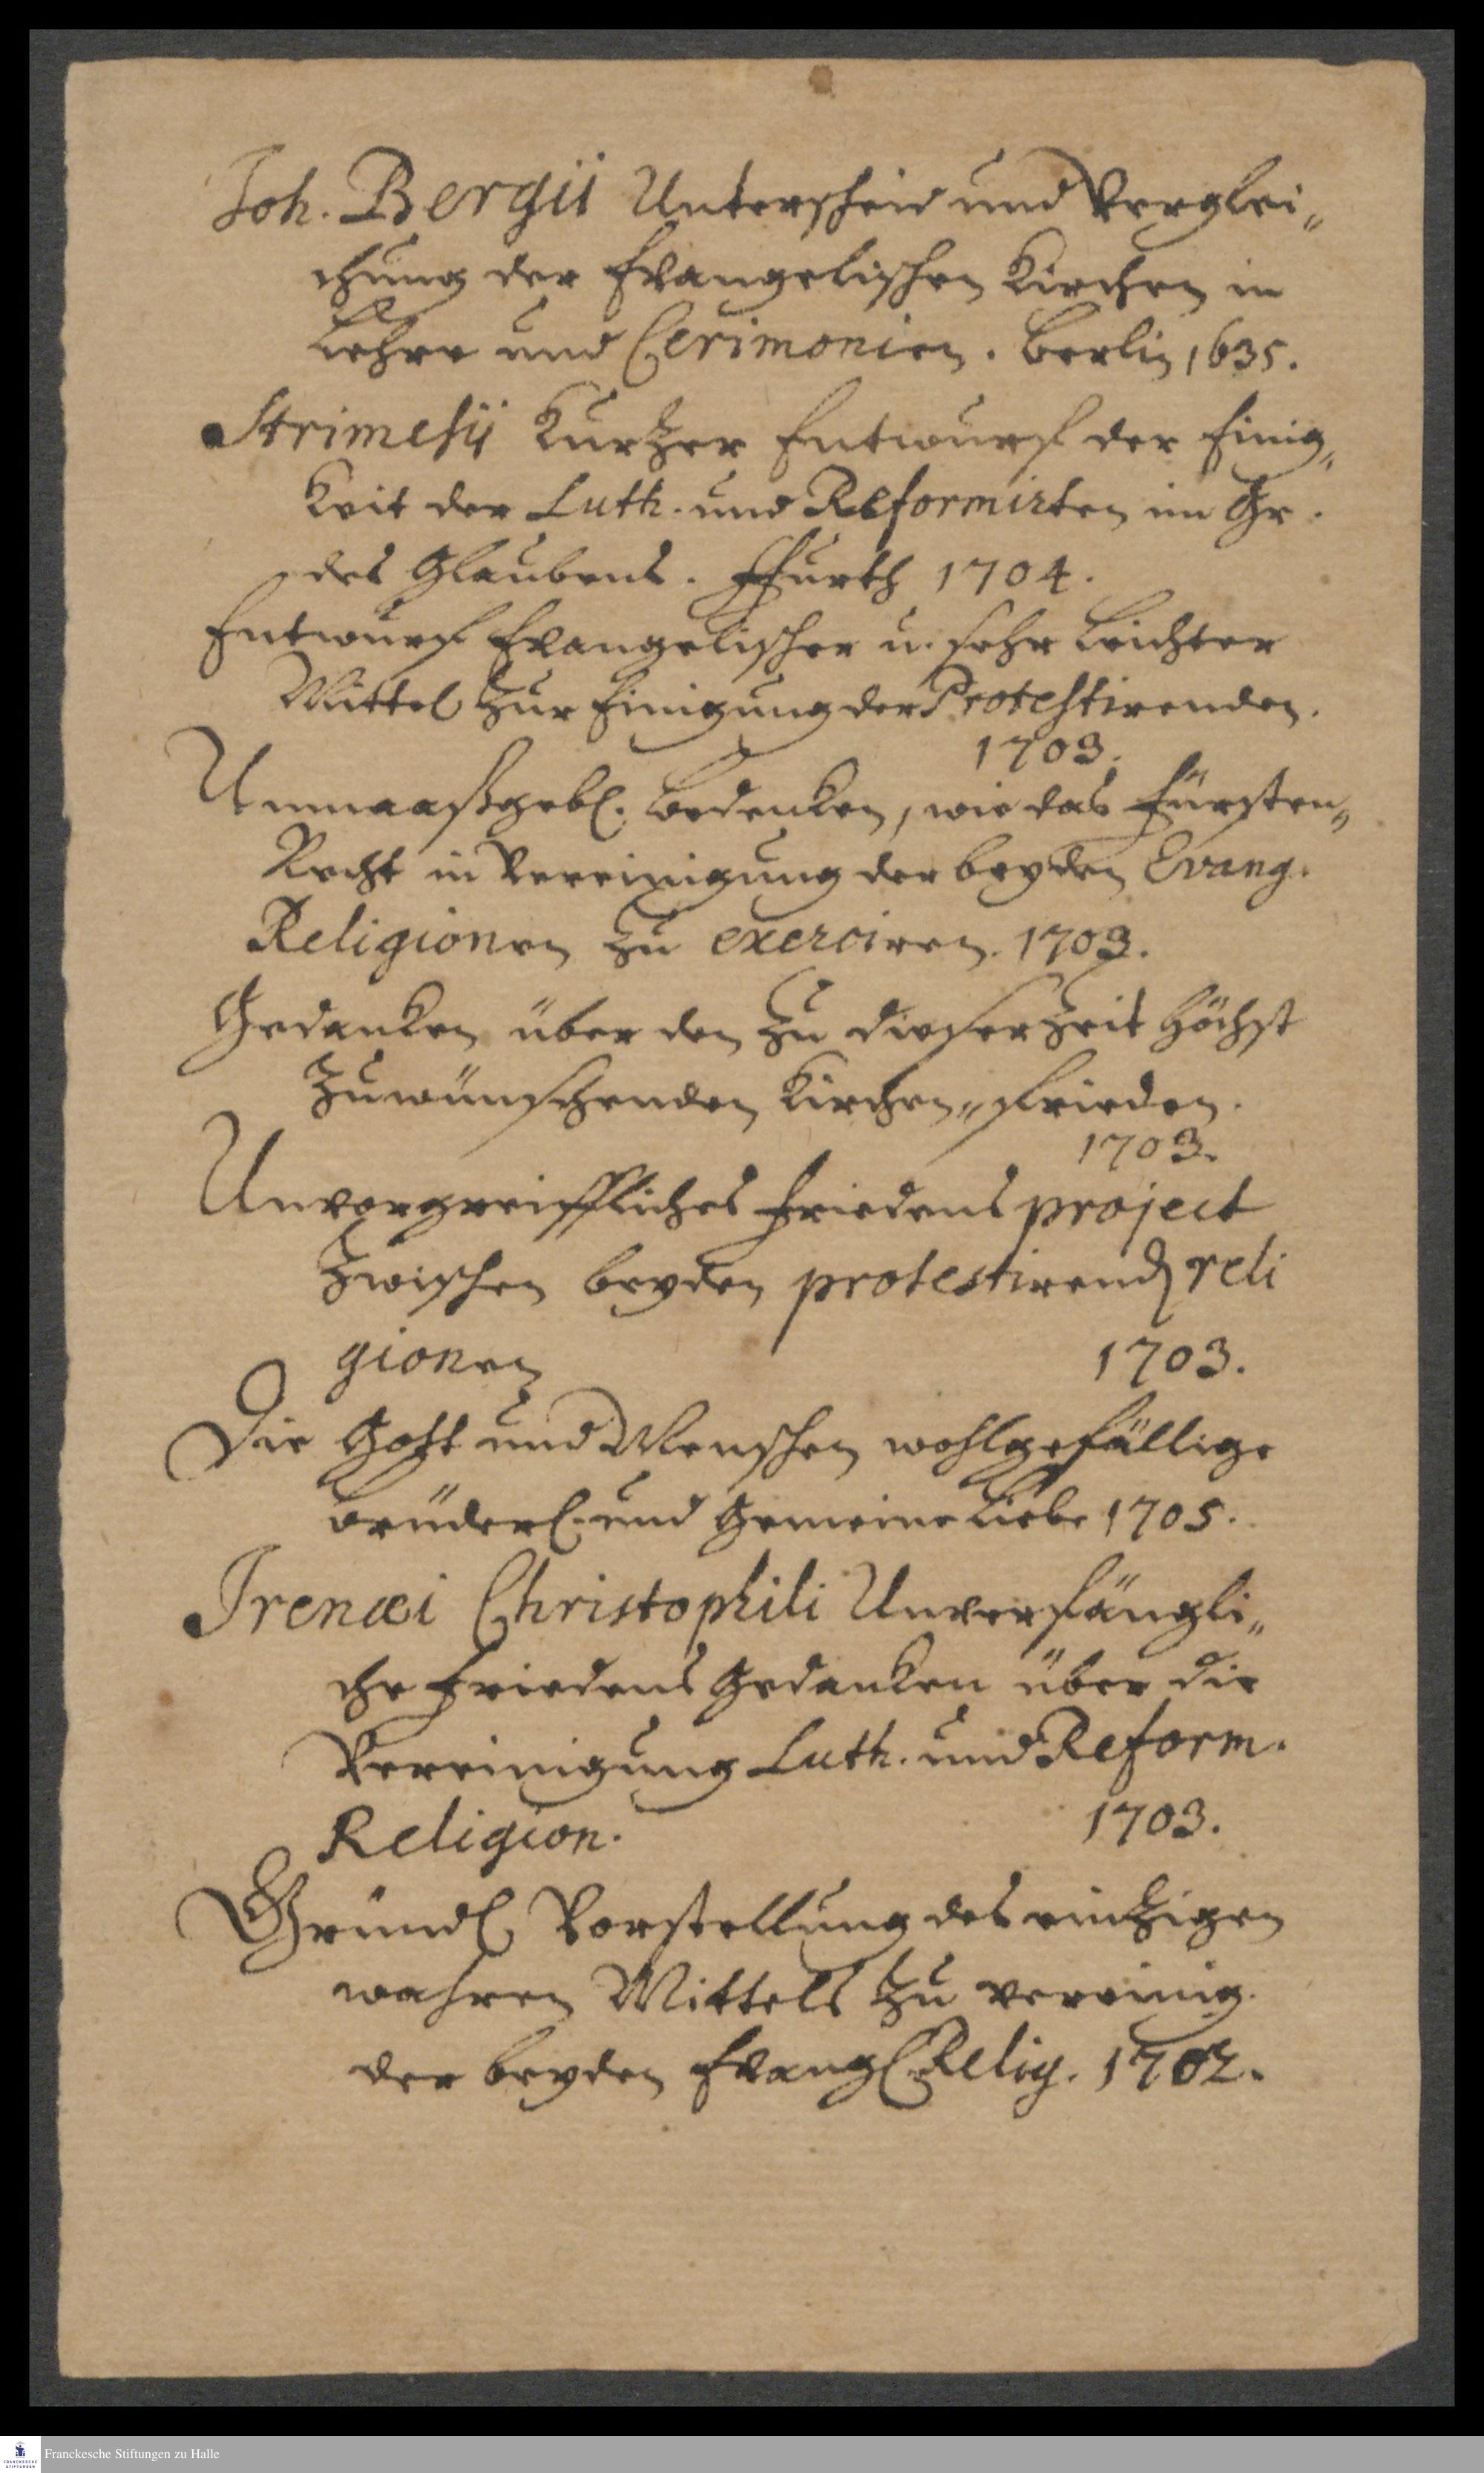 Joh. Bergii Unterscheid und Verglei„
chung der Evangelischen Kirchen in
Lehre und Cerimonien. Berlin 1635.
Strimesii Kurtzer Entwurf der Einig„
keit der Luth. und Reformirten im Gr.
des Glaubens. Ffurth 1704.
Entwurf Evangelischer u. sehr leichter
Mittel zur Einigung der Protestirenden.
1703.
Unmaaßgebl. Bedenken, wie das Fürsten„
Recht in Vereinigung der beyden Evang.
Religionen zu exerciren. 1703.
Gedanken über den zu dieser Zeit höchst
zuwünschenden Kirchen„frieden.
1703.
Unvorgreiffliches Friedens project
zwischen beyden protestirenden reli
gionen 1703.
Die Gott und Menschen wohlgefällige
brüderl. und Gemeine Liebe 1705.
Irenæi Christophili Unverfängli„
che Friedens Gedanken über die
Vereinigung Luth. und Reform.
Religion. 1703.
Gründl. Vorstellung des eintzigen
wahren Mittels zu vereinig.
der beyden Evangl. Relig. 1702.
Franckesche Stiftungen zu Halle
FRANCKESCHE
STIFTUNGEN